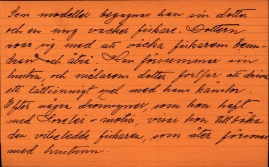 Som modeller begagnar han sin dotter
och en ung vacker fiskare. Dottern
roar sig med att väcka fiskarens beun-
dran och åtrå. Han försummar sin
hustru, och målarens dotter fortfar att driva
ett lättsinnigt spel med hans känslor.
Efter några drömsyner, som han haft
med Lorelei-motiv, visar hon tillbaka
den vilseledde fiskaren, som åter försonas
med hustrun.